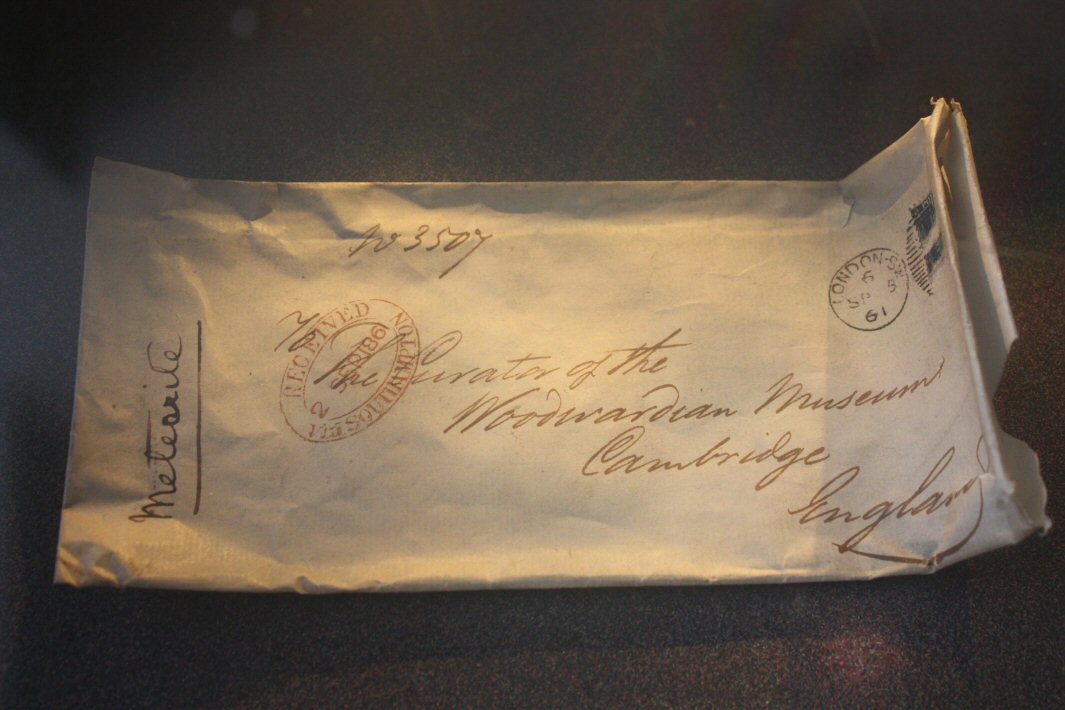 No 3507
To
The Curator of the
Woodwardian Museum
Cambridge
England
Meteorite
RECEIVED
2
SOUTHAMPTON
LONDON-SW
6
SP 5
61